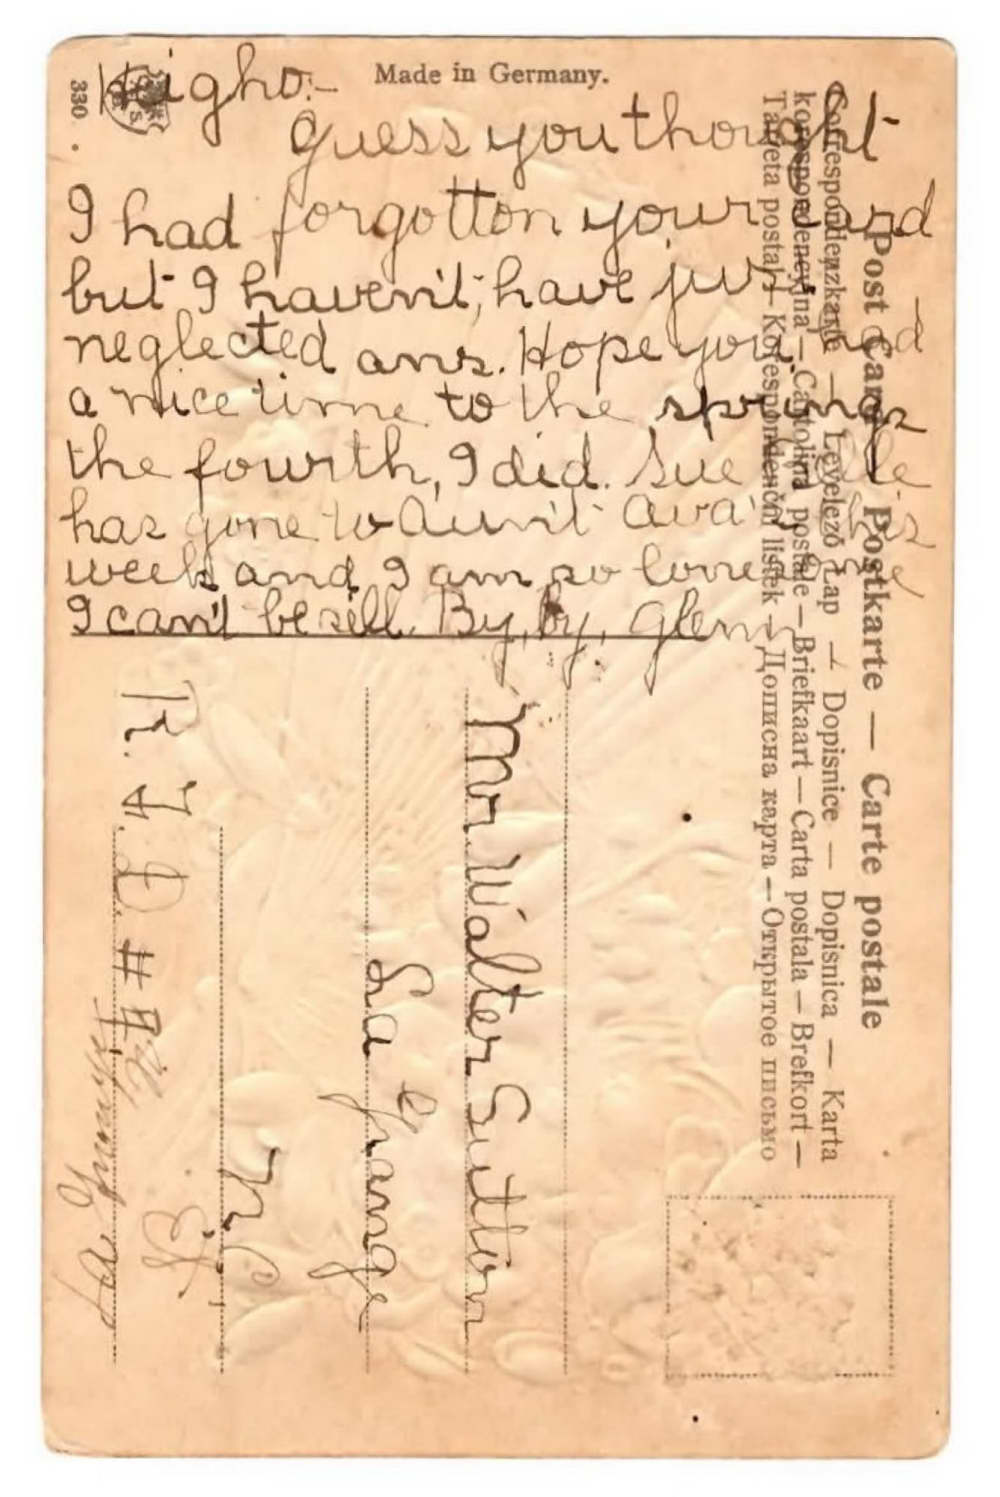 Made in Germany.
330
Heigho:-
Guess you thought
I had forgotton your card
but I haven't, have just
neglected ans. Hope you had
a nice time to the springs
the fourth, I did. Sue
has gone to Aunt Ava's this
week and I am so lonesome
I can't be sell. By, by, Glenn
Post Card — Postkarte — Carte postale
Correspondenzkarte — Levelező Lap — Dopisnice — Dopisnica — Karta
korespondencyjna — Cartolina postale — Briefkaart — Carta postala — Brefkort —
Tarjeta postal — Korespondenční lístek — Дописна карта — Открытое письмо
Mr. Walter Sutton
La Grange
N.C.
R.F.D. #
La Grange